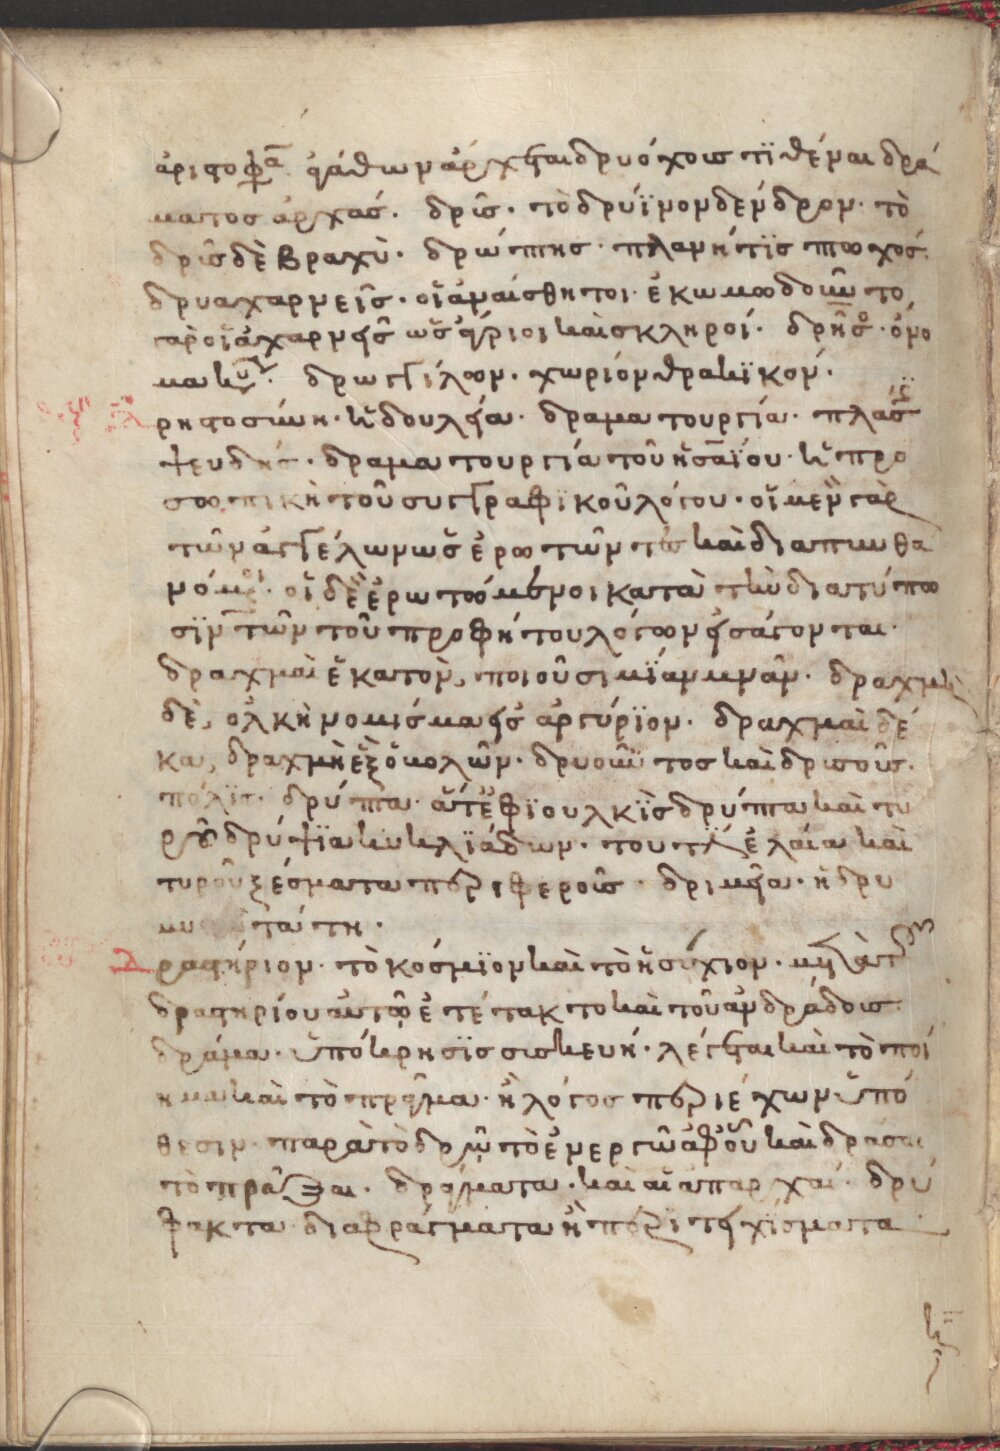 ἀριστοφα ἀγάθων ἄρχεται δρυόχους τϊθέναι δρά
ματος ἀρχάς. δρῦς. τὸ δρύϊνον δένδρον. τὸ
δρῦς δὲ βραχὺ. δρώπτης. πλανήτϊς πτωχός.
δρυαχαρνεῖς. οἱ ἀναίσθητοι. ἐκωμωδοῦντο
γὰρ οἱ ἀχαρνεῖς ὡς ἄγριοι καὶ σκληροί. δρῆσος. ὄνο
μα κύριον. δρωγγίλων. χωρίον θρακϊκόν.
ρηστοσύνη. ἡ δουλεία. δραματουργία. πλάσις
ψευδής. δραματουργία τοῦ ἡσαΐου. ἡ προ
σωπικὴ τοῦ συγγραφϊκοῦ λόγου. οἱ μὲν γὰρ
τῶν ἀγγέλων ὡς ἐρωτῶντες καὶ διαπυνθα
νόμενοι. οἱ δὲ ἐρωτώμενοι κατὰ τὴν διατύπω
σϊν τῶν τοῦ προφήτου λόγων εἰσάγονται.
δραχμαὶ ἑκατὸν, ποιοῦσι μΐαν μνᾶν. δραχμὴ
δὲ, ὁλκὴ νομίσμα εἰς ἀργύρϊον. δραχμαὶ δέ
κα, δραχμὴ ἓξ ὀβολῶν. δρυοῦντος καὶ δρισοῦς.
πόλϊς. δρύπτα. ἄγε φϊουλκὶς δρύπτα καὶ τυ
ροῦ δρύψϊα κυκλϊάδων. τουτέστιν ἐλαία καὶ
τυροῦ ξέσματα περιφεροῦς. δριμεῖα. ἡ δρυ
ταύτη.
ραστήριον. τὸ κόσμϊον καὶ τὸ ἡσύχιον. μετὰ τοῦ
δραστηρίου αὐτῶ ἐτέτακτο καὶ τοῦ ἀνδρώδους.
δράμα. ὑπόκρησϊς συσκευή. λέγεται καὶ τὸ ποί
ημα καὶ τὸ πρᾶγμα. ἢ λόγος περιέχων ὑπό
θεσιν. παρὰ τὸ δρῶ τὸ ἐνεργῶ ἀφ' οὗ καὶ δρᾶσαι
τὸ πρᾶξαι. δράγματα. καὶ αἱ ἀπαρχαί. δρύ
φακτα διαφράγματα ἢ περιτειχίσματα.